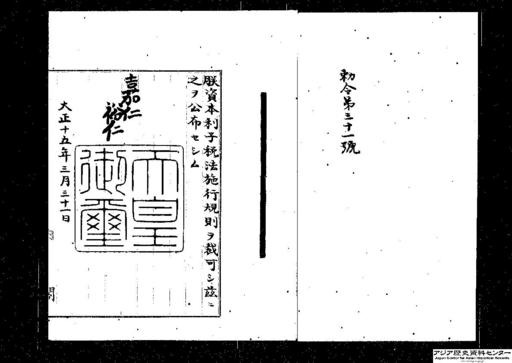 勅令第三十一號
朕資本利子税法施行規則ヲ裁可シ茲ニ
之ヲ公布セシム
嘉仁
裕仁
天皇
御璽
大正十五年三月三十一日
アジア歴史資料センター
Japan Center for Asian Historical Records